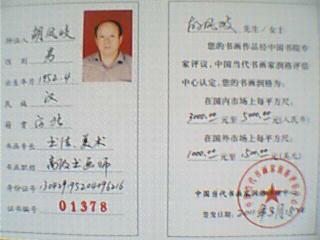 持证人 胡凤岐
性 别 男
出生年月 1952.4
民 族 汉
籍 贯 河北
书画专长 书法、美术
书画职称 高级书画师
身份证号
证书编号 01378
胡凤岐 先生/女士
您的书画作品经中国书院专
家评议,中国当代书画家润格评估
中心认定,您的书画润格为:
在国内市场上每平方尺:
3000.00 元至 5000.00 元(人民币)
在国外市场上每平方尺:
1000.00 元至 1500.00 元(美元)
中国当代书画家润格评估中心
签发日期: